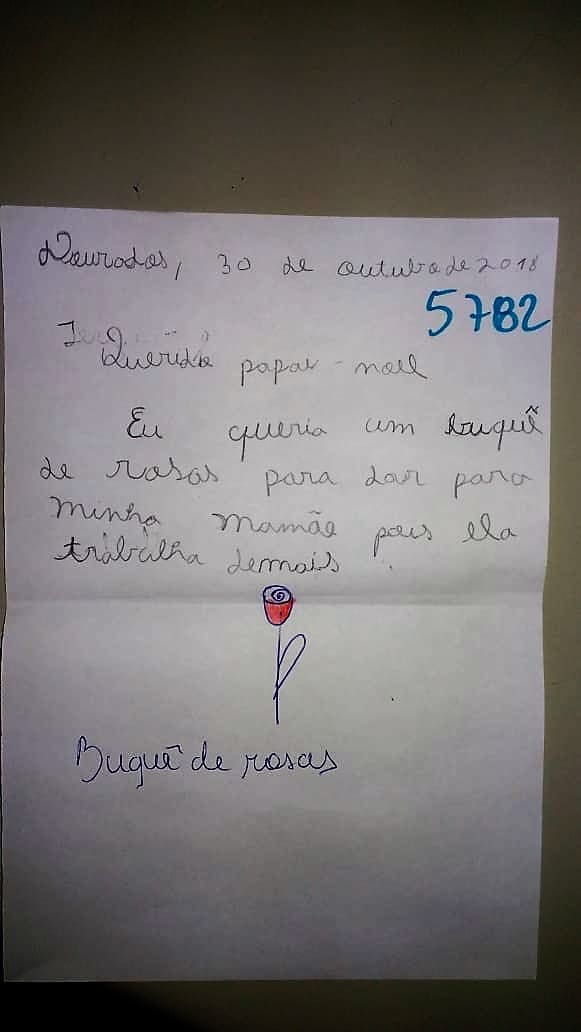 Dourados, 30 de outubro de 2018
5782
Querido papai-noel
Eu queria um buquê
de rosas para dar para
minha mamãe pois ela
trabalha demais.
Buquê de rosas